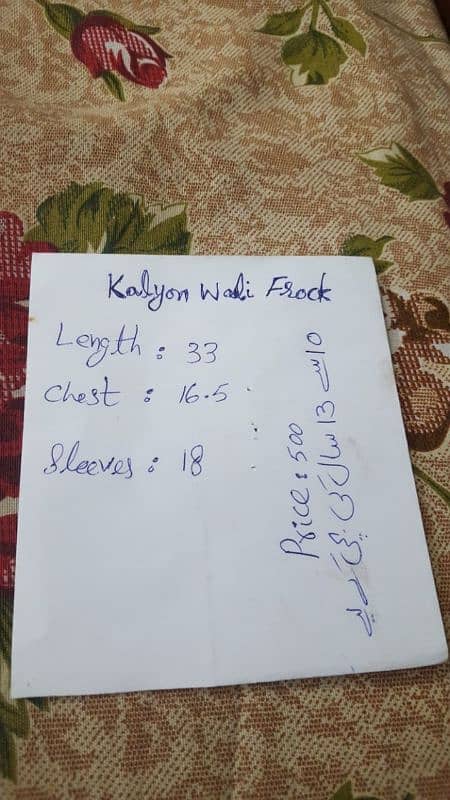 Kalyon Wali Frock
Length : 33
Chest : 16.5
Sleeves : 18
Price : 500
10 سے 13 سال کی بچی کے لیے